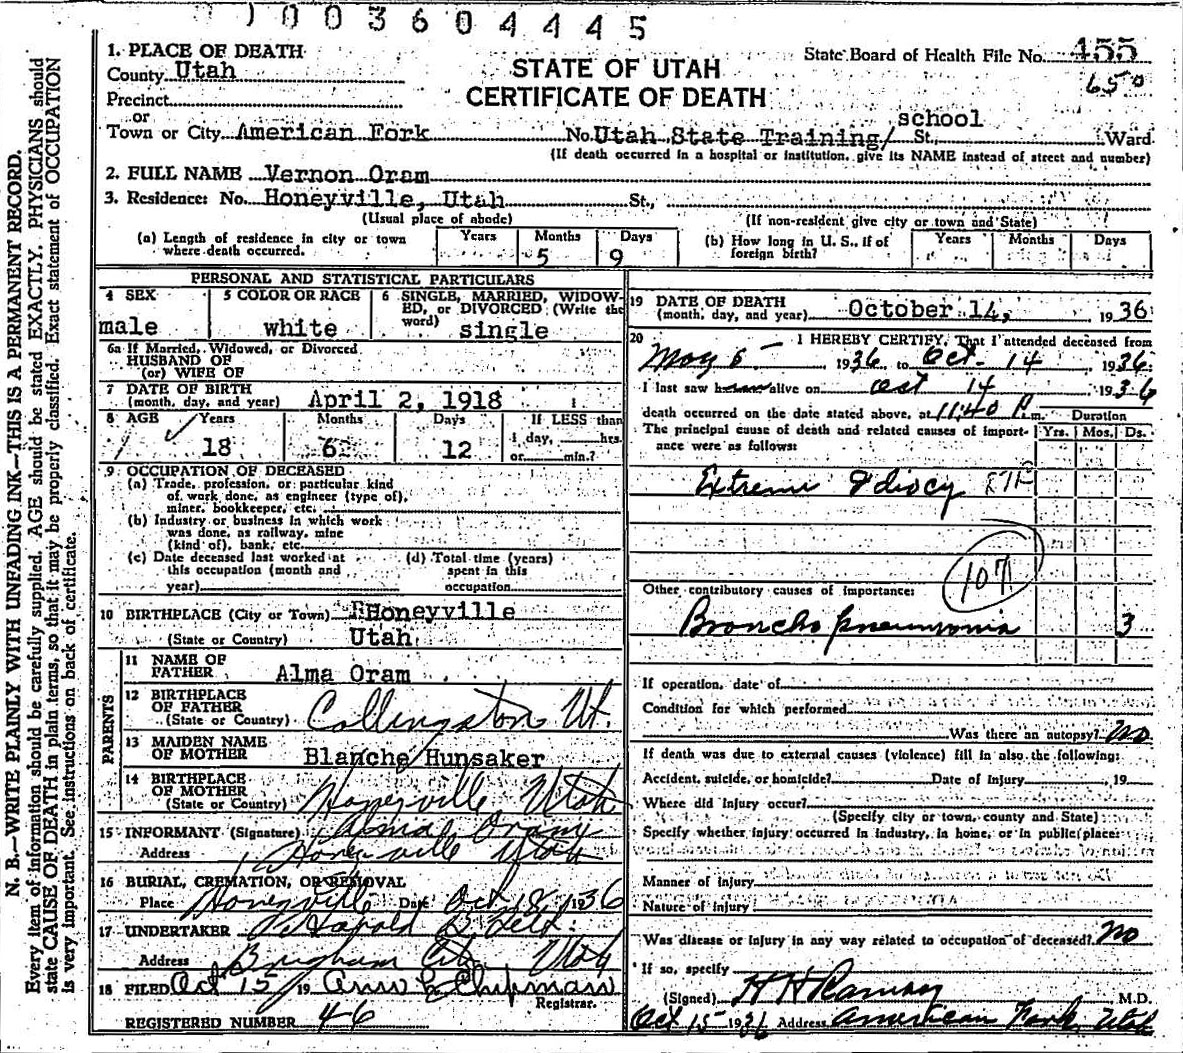 1003604445
1. PLACE OF DEATH
County Utah
Precinct
or
Town or City American Fork
STATE OF UTAH
CERTIFICATE OF DEATH
State Board of Health File No. 455
650
No. Utah State Training/ school St., Ward
(If death occurred in a hospital or institution, give its NAME instead of street and number)
2. FULL NAME Vernon Oram
3. Residence: No. Honeyville, Utah St.,
(Usual place of abode) (If non-resident give city or town and State)
(a) Length of residence in city or town where death occurred. Years Months 5 Days 9
(b) How long in U. S., if of foreign birth? Years Months Days
PERSONAL AND STATISTICAL PARTICULARS
4 SEX male
5 COLOR OR RACE white
6 SINGLE, MARRIED, WIDOW-
ED, or DIVORCED (Write the
word) single
6a If Married, Widowed, or Divorced
HUSBAND OF
(or) WIFE OF
7 DATE OF BIRTH
(month, day, and year) April 2, 1918
8 AGE Years 18 Months 6 Days 12 If LESS than
1 day, hrs.
or min.?
9 OCCUPATION OF DECEASED
(a) Trade, profession, or particular kind
of work done, as engineer (type of),
miner, bookkeeper, etc.
(b) Industry or business in which work
was done, as railway, mine
(kind of), bank, etc.
(c) Date deceased last worked at
this occupation (month and
year)
(d) Total time (years)
spent in this
occupation
10 BIRTHPLACE (City or Town) Honeyville
(State or Country) Utah
PARENTS
11 NAME OF
FATHER Alma Oram
12 BIRTHPLACE
OF FATHER
(State or Country) Collingston Ut.
13 MAIDEN NAME
OF MOTHER Blanche Hunsaker
14 BIRTHPLACE
OF MOTHER
(State or Country) Honeyville, Utah
15 INFORMANT (Signature) Alma Oram
Address Honeyville Utah
16 BURIAL, CREMATION, OR REMOVAL
Place Honeyville Date Oct 18, 1936
17 UNDERTAKER Harold B. Felt
Address Brigham City Utah
18 FILED Oct 15 19 Ann E Chipman
Registrar.
REGISTERED NUMBER 46
19 DATE OF DEATH
(month, day, and year) October 14, 1936
20 I HEREBY CERTIFY, That I attended deceased from
May 5 1936, to Oct. 14, 1936
I last saw h alive on Oct 14, 1936
death occurred on the date stated above, at 11:40 P.m. Duration
The principal cause of death and related causes of import-
ance were as follows: Yrs. Mos. Ds.
Extreme Idiocy
107
Other contributory causes of importance:
Broncho pneumonia 3
If operation, date of
Condition for which performed
Was there an autopsy? No
If death was due to external causes (violence) fill in also the following:
Accident, suicide, or homicide? Date of Injury , 19
Where did injury occur?
(Specify city or town, county and State)
Specify whether injury occurred in industry, in home, or in public place:
Manner of injury
Nature of injury
Was disease or injury in any way related to occupation of deceased? No
If so, specify
(Signed) H H Ramsay M.D.
Oct 15 1936 Address American Fork, Utah
N. B.—WRITE PLAINLY WITH UNFADING INK—THIS IS A PERMANENT RECORD.
Every item of information should be carefully supplied. AGE should be stated EXACTLY. PHYSICIANS should
state CAUSE OF DEATH in plain terms, so that it may be properly classified. Exact statement of OCCUPATION
is very important. See instructions on back of certificate.